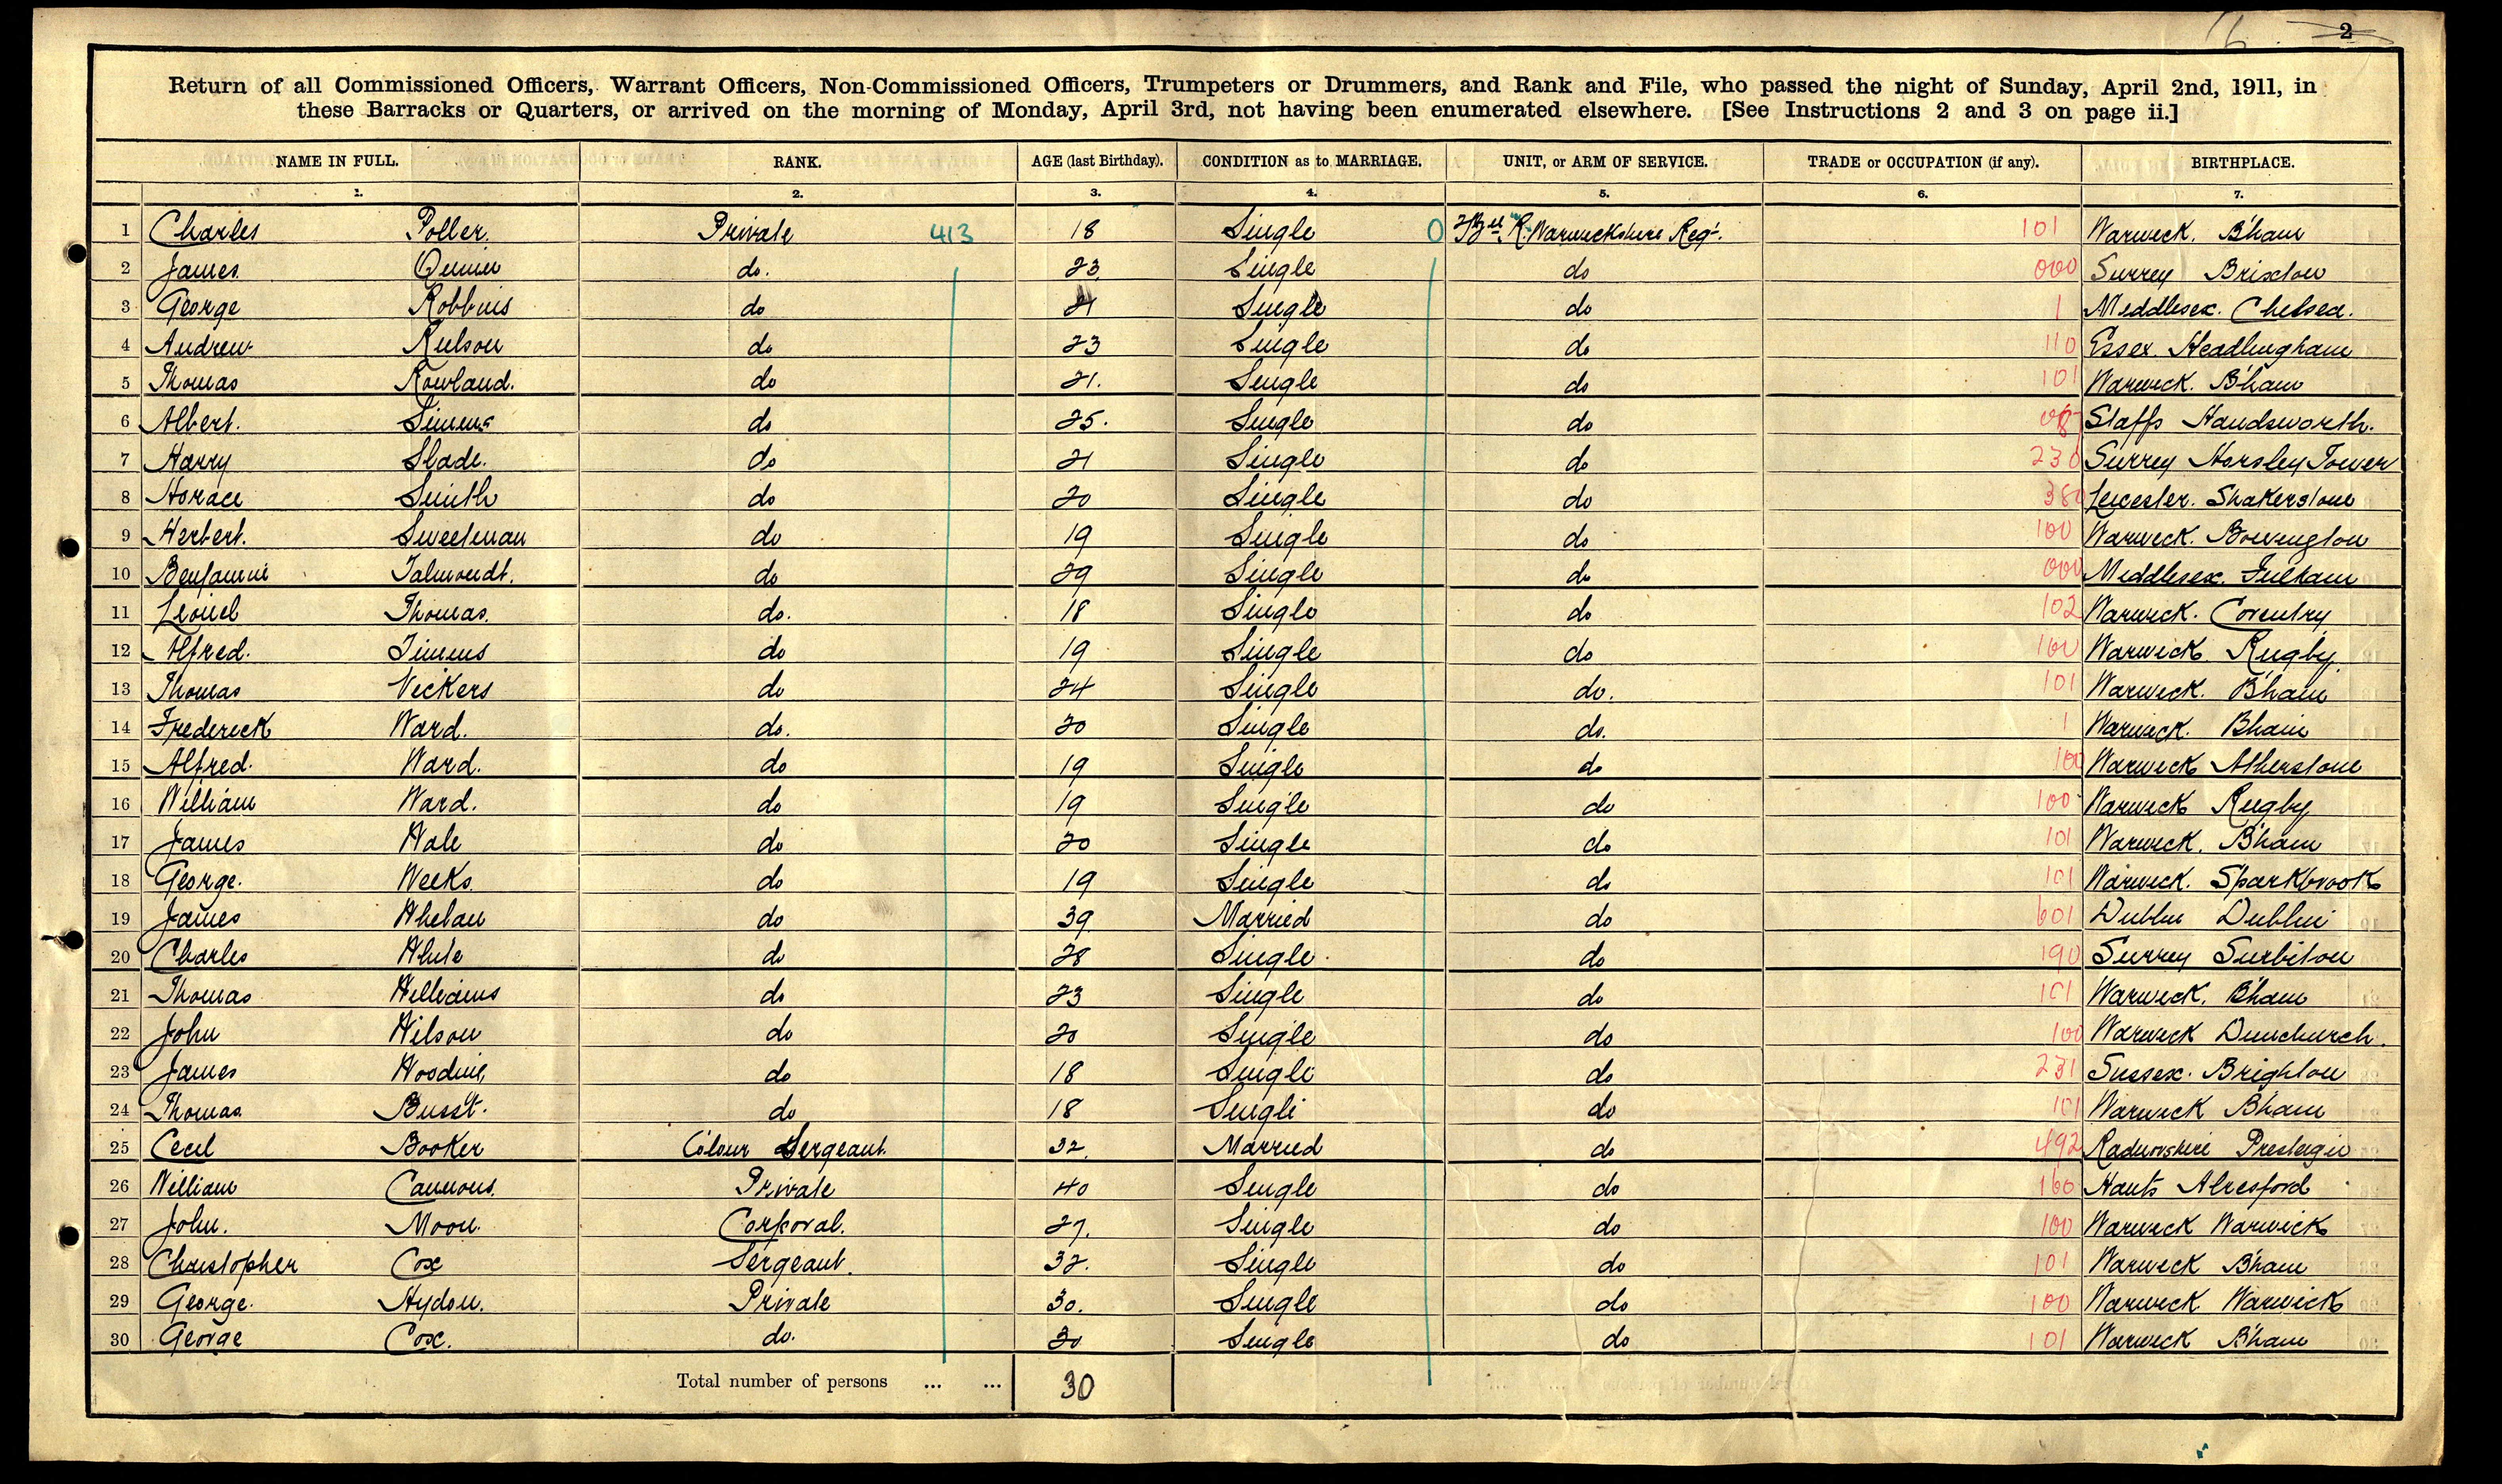 2
Return of all Commissioned Officers, Warrant Officers, Non-Commissioned Officers, Trumpeters or Drummers, and Rank and File, who passed the night of Sunday, April 2nd, 1911, in
these Barracks or Quarters, or arrived on the morning of Monday, April 3rd, not having been enumerated elsewhere. [See Instructions 2 and 3 on page ii.]
NAME IN FULL. RANK. AGE (last Birthday). CONDITION as to MARRIAGE. UNIT, or ARM OF SERVICE. TRADE or OCCUPATION (if any). BIRTHPLACE.
1. 2. 3. 4. 5. 6. 7.
1 Charles Potter. Private 413 18 Single 0 R. Warwickshire Regt. 101 Warwick. B'ham
2 James Quinn do. 23 Single do 000 Surrey Brixton
3 George Robbins do 21 Single do 1 Middlesex. Chelsea.
4 Andrew do 23 Single do 110 Essex. Headingham
5 Thomas Rowland. do 21. Single do 101 Warwick. B'ham
6 Albert. Simms do 25. Single do Staffs Handsworth.
7 Harry Slade. do 21 Single do 230 Surrey Horsley Tower
8 Horace Smith do 20 Single do 380 Leicester. Shakerstone
9 Herbert. Sweetman do 19 Single do 100 Warwick. Bovington
10 Benjamin Talmondt. do 29 Single do 000 Middlesex. Fulham
11 Lionel Thomas. do. 18 Single do 102 Warwick. Coventry
12 Alfred. Timms do 19 Single do 100 Warwick. Rugby.
13 Thomas Vickers do 24 Single do. 101 Warwick. B'ham
14 Frederick Ward. do. 20 Single do. 1 Warwick. Bham
15 Alfred. Ward. do 19 Single do 100 Warwick Atherstone
16 William Ward. do 19 Single do 100 Warwick Rugby
17 James Wale do 20 Single do 101 Warwick. B'ham
18 George. Weeks. do 19 Single do 101 Warwick. Sparkbrook
19 James Whelan do 39 Married do 601 Dublin Dublin
20 Charles White do 28 Single. do 190 Surrey Surbiton
21 Thomas Williams do 23 Single do 101 Warwick. B'ham
22 John Wilson do 20 Single do 100 Warwick Dunchurch.
23 James Wooding do 18 Single do 231 Sussex. Brighton
24 Thomas. Busst. do 18 Single do 101 Warwick B'ham
25 Cecil Booker Colour Sergeant. 32. Married do 492 Radnorshire Presteign
26 William Cannons. Private 40 Single do 160 Hants Alresford
27 John. Moon. Corporal. 27. Single do 100 Warwick Warwick
28 Christopher Cox Sergeant. 32. Single do 101 Warwick B'ham
29 George. Hydon. Private 30. Single do 100 Warwick Warwick
30 George Cox. do. 30 Single do 101 Warwick B'ham
Total number of persons ... ... 30